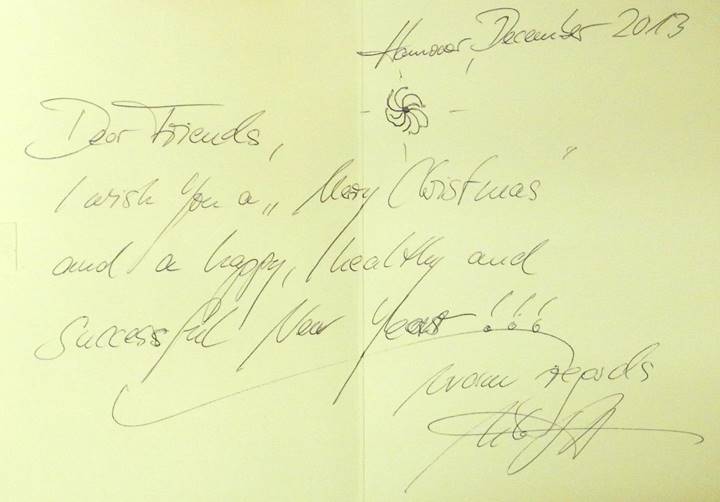 Hannover, December 2013
Dear Friends,
I wish You a „Merry Christmas"
and a happy, healthy and
successful New Year !!!
warm regards